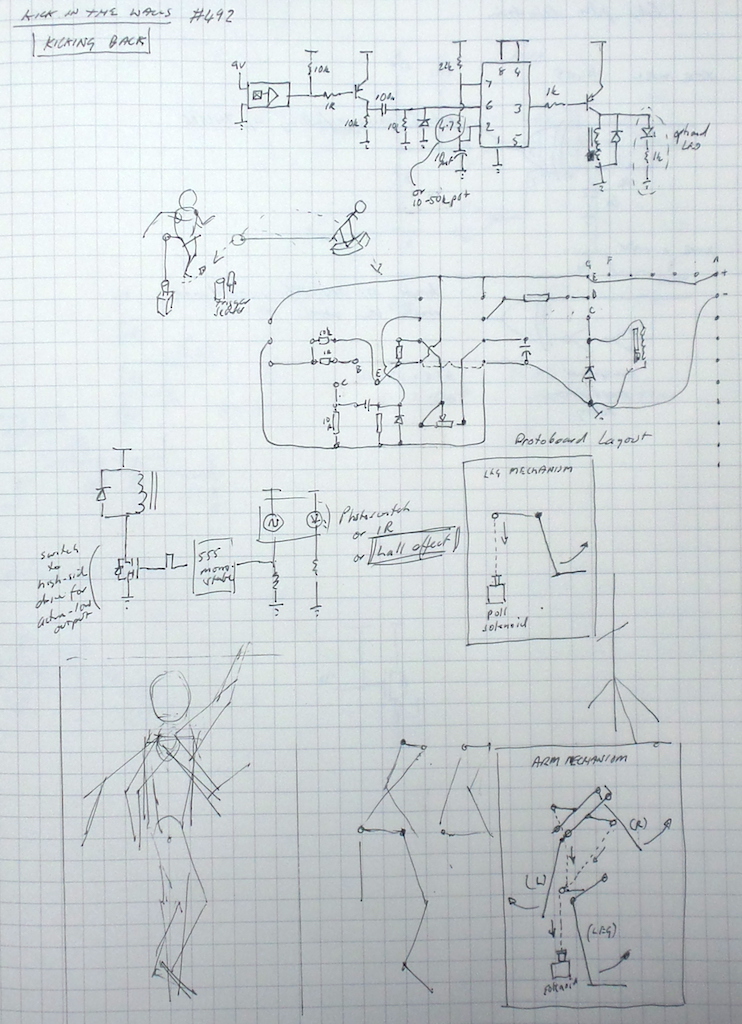 KICK IN THE WALLS #492
KICKING BACK
9V
10k
1k
100n
10k
10k
22k
4.7
10uF
or
10-50k pot
7
6
2
8
4
3
1
5
1k
optional
LED
1k
Trigger
Sensor
G
F
E
D
C
A
+
-
10k
1k
B
C
E
10k
Protoboard Layout
switch
to
high-side
drive for
active-low
output
555
mono-
stable
Photoswitch
or IR
or Hall effect
LEG MECHANISM
pull
solenoid
ARM MECHANISM
(R)
(L)
(LEG)
solenoid